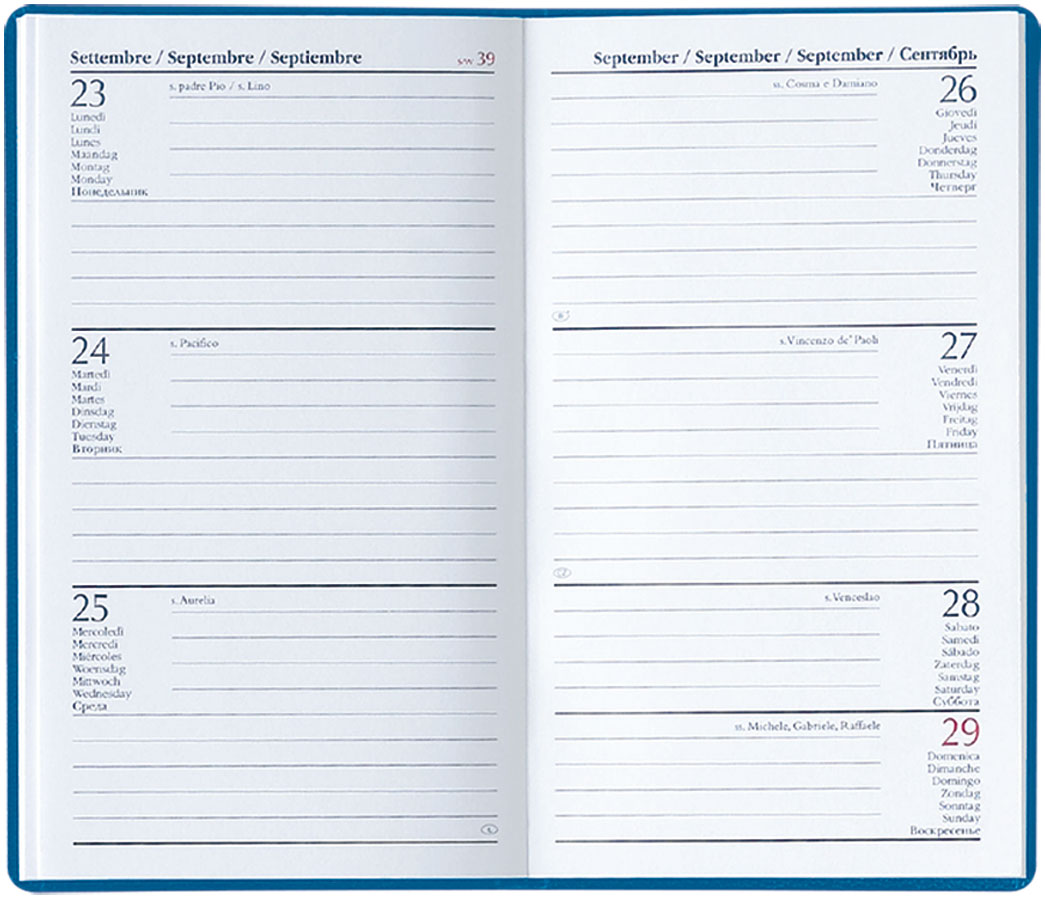 Settembre / Septembre / Septiembre
s/w 39
23
s. padre Pio / s. Lino
Lunedì
Lundi
Lunes
Maandag
Montag
Monday
Понедельник
24
s. Pacifico
Martedì
Mardi
Martes
Dinsdag
Dienstag
Tuesday
Вторник
25
s. Aurelia
Mercoledì
Mercredi
Miércoles
Woensdag
Mittwoch
Wednesday
Среда
September / September / September / Сентябрь
ss. Cosma e Damiano
26
Giovedì
Jeudi
Jueves
Donderdag
Donnerstag
Thursday
Четверг
s. Vincenzo de' Paoli
27
Venerdì
Vendredi
Viernes
Vrijdag
Freitag
Friday
Пятница
s. Venceslao
28
Sabato
Samedi
Sábado
Zaterdag
Samstag
Saturday
Суббота
ss. Michele, Gabriele, Raffaele
29
Domenica
Dimanche
Domingo
Zondag
Sonntag
Sunday
Воскресенье